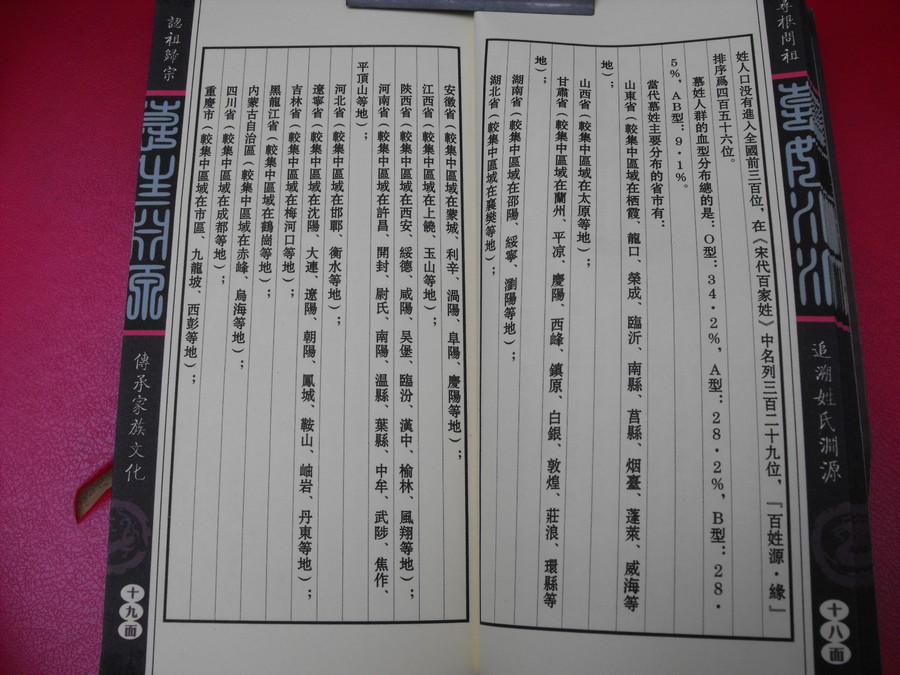 尋根問祖
慕姓源流
追溯姓氏淵源
十八面
姓人口没有進入全國前三百位，在《宋代百家姓》中名列三百二十九位，『百姓源·緣』
排序爲四百五十六位。
慕姓人群的血型分布總的是：O型：34·2%，A型：28·2%，B型：28·
5%，AB型：9·1%。
當代慕姓主要分布的省市有：
山東省（較集中區域在栖霞、龍口、榮成、臨沂、南縣、莒縣、烟臺、蓬萊、威海等
地）；
山西省（較集中區域在太原等地）；
甘肅省（較集中區域在蘭州、平凉、慶陽、西峰、鎮原、白銀、敦煌、莊浪、環縣等
地）；
湖南省（較集中區域在邵陽、綏寧、瀏陽等地）；
湖北省（較集中區域在襄樊等地）；
安徽省（較集中區域在蒙城、利辛、渦陽、阜陽、慶陽等地）；
江西省（較集中區域在上饒、玉山等地）；
陝西省（較集中區域在西安、綏德、咸陽、吴堡、臨汾、漢中、榆林、風翔等地）；
河南省（較集中區域在許昌、開封、尉氏、南陽、温縣、葉縣、中牟、武陟、焦作、
平頂山等地）；
河北省（較集中區域在邯鄲、衡水等地）；
遼寧省（較集中區域在沈陽、大連、遼陽、朝陽、鳳城、鞍山、岫岩、丹東等地）；
吉林省（較集中區域在梅河口等地）；
黑龍江省（較集中區域在鶴崗等地）；
内蒙古自治區（較集中區域在赤峰、烏海等地）；
四川省（較集中區域在成都等地）；
重慶市（較集中區域在市區、九龍坡、西彭等地）；
認祖歸宗
傳承家族文化
十九面